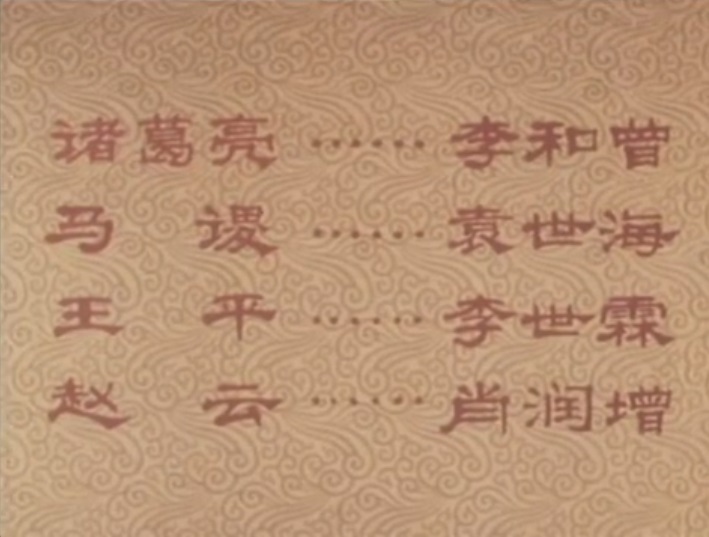 诸葛亮······李和曾
马谡······袁世海
王平······李世霖
赵云······肖润增